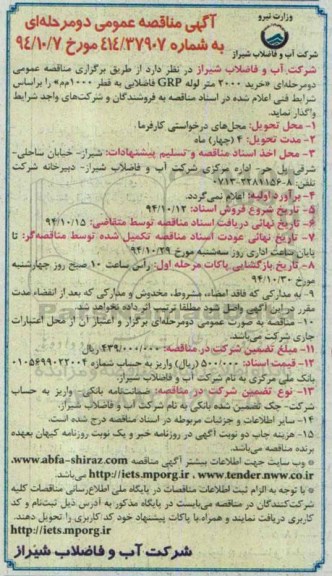 وزارت نیرو
شرکت آب و فاضلاب شیراز
آگهی مناقصه عمومی دومرحله‌ای
به شماره ۴۱۴/۳۷۹۰۷ مورخ ۹۴/۱۰/۷
شرکت آب و فاضلاب شیراز در نظر دارد از طریق برگزاری مناقصه عمومی
دومرحله‌ای «خرید ۲۰۰۰ متر لوله GRP فاضلابی به قطر ۱۰۰۰مم» را براساس
شرایط فنی اعلام شده در اسناد مناقصه به فروشندگان و شرکت‌های واجد شرایط
واگذار نماید.
۱- محل تحویل: محل‌های درخواستی کارفرما
۲- مدت تحویل: ۴ (چهار) ماه
۳- محل اخذ اسناد مناقصه و تسلیم پیشنهادات: شیراز- خیابان ساحلی-
شرقی پل حر- اداره مرکزی شرکت آب و فاضلاب شیراز- دبیرخانه شرکت
تلفن: ۸-۰۷۱۳-۳۲۲۸۷۱۵۶
۴- برآورد اولیه: اعلام نمی‌گردد.
۵- تاریخ شروع فروش اسناد: ۹۴/۱۰/۱۲
۶- تاریخ نهائی دریافت اسناد مناقصه توسط متقاضی: ۹۴/۱۰/۱۵
۷- تاریخ نهائی عودت اسناد مناقصه تکمیل شده توسط مناقصه‌گر: تا
پایان ساعت اداری روز سه‌شنبه مورخ ۹۴/۱۰/۲۹
۸- تاریخ بازگشایی پاکات مرحله اول: رأس ساعت ۱۰ صبح روز چهارشنبه
مورخ ۹۴/۱۰/۳۰
۹- به مدارکی که فاقد امضاء، مشروط، مخدوش و مدارکی که بعد از انقضاء مدت
مقرر در این آگهی واصل شود مطلقا ترتیب اثر داده نخواهد شد.
۱۰- مناقصه به صورت عمومی دومرحله‌ای برگزار و اعتبار آن از محل اعتبارات
جاری شرکت می‌باشد.
۱۱- مبلغ تضمین شرکت در مناقصه: ۴۳۹/۰۰۰/۰۰۰ ریال
۱۲- قیمت اسناد: ۵۰۰/۰۰۰ (ریال) واریز به حساب شماره ۰۱۰۵۶۹۹۰۲۲۰۰۴
بانک ملی مرکزی به نام شرکت آب و فاضلاب شیراز.
۱۳- نوع تضمین شرکت در مناقصه: ضمانت‌نامه بانکی- واریز به حساب
شرکت- چک تضمین شده بانکی به نام شرکت آب و فاضلاب شیراز.
۱۴- سایر اطلاعات و جزئیات مربوطه در اسناد مناقصه درج شده است.
۱۵- هزینه چاپ دو نوبت آگهی در روزنامه خبر و یک نوبت روزنامه کیهان بعهده
برنده مناقصه می‌باشد.
وب سایت جهت اطلاعات بیشتر آگهی مناقصه www.abfa-shiraz.com،
www.tender.nww.co.ir ، http://iets.mporg.ir می‌باشد.
با توجه به الزام ثبت اطلاعات مناقصات در پایگاه ملی اطلاع‌رسانی مناقصات کلیه
شرکت‌کنندگان در مناقصه می‌بایست در پایگاه مذکور به آدرس ذیل ثبت‌نام و کد
کاربری دریافت نمایند و همراه با پاکات پیشنهاد خود کد کاربری را تحویل دهند.
http://iets.mporg.ir
شرکت آب و فاضلاب شیراز